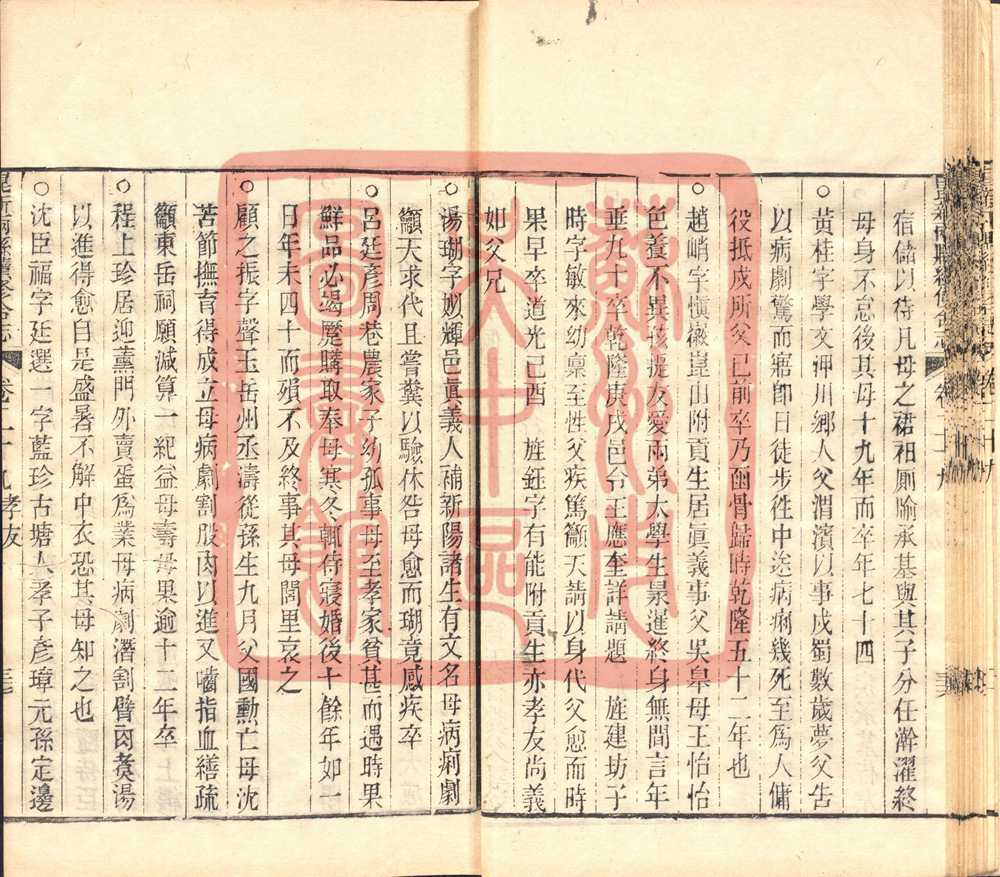 宿儲以待凡母之裙祖厠牏承基與其子分任澣濯終
母身不怠後其母十九年而卒年七十四
黃桂字學文神川鄉人父渭濱以事戍蜀數歲夢父告
以病劇驚而寤卽日徒步往中途病痢幾死至爲人傭
役抵戍所父已前卒乃函骨歸時乾隆五十二年也
趙峭字愼徽崑山附貢生居眞義事父吳皋母王怡怡
色養不異孩提友愛兩弟太學生暴暹終身無間言年
垂九十卒乾隆庚戌邑令王應奎詳請題　旌建坊子
時字敏來幼稟至性父疾篤籲天請以身代父愈而時
果早卒道光己酉　旌鉦字有能附貢生亦孝友尚義
如父兄
湯瑚字姒輝邑眞義人補新陽諸生有文名母病痢劇
籲天求代且嘗糞以驗休咎母愈而瑚竟感疾卒
呂廷彥周巷農家子幼孤事母至孝家貧甚而遇時果
鮮品必竭蹷購取奉母寒冬輒侍寢婚後十餘年如一
日年未四十而殞不及終事其母閭里哀之
顧之振字聲玉岳州丞濤從孫生九月父國勳亡母沈
苦節撫育得成立母病劇割股肉以進又嚙指血繕疏
籲東岳祠願減算一紀益母壽母果逾十二年卒
程上珍居迎薰門外賣蛋爲業母病劇潛割臂肉煑湯
以進得愈自是盛暑不解中衣恐其母知之也
沈臣福字廷選一字藍珍古塘人孝子彥璋元孫定邊
昆新兩縣續修合志　卷二十九孝友